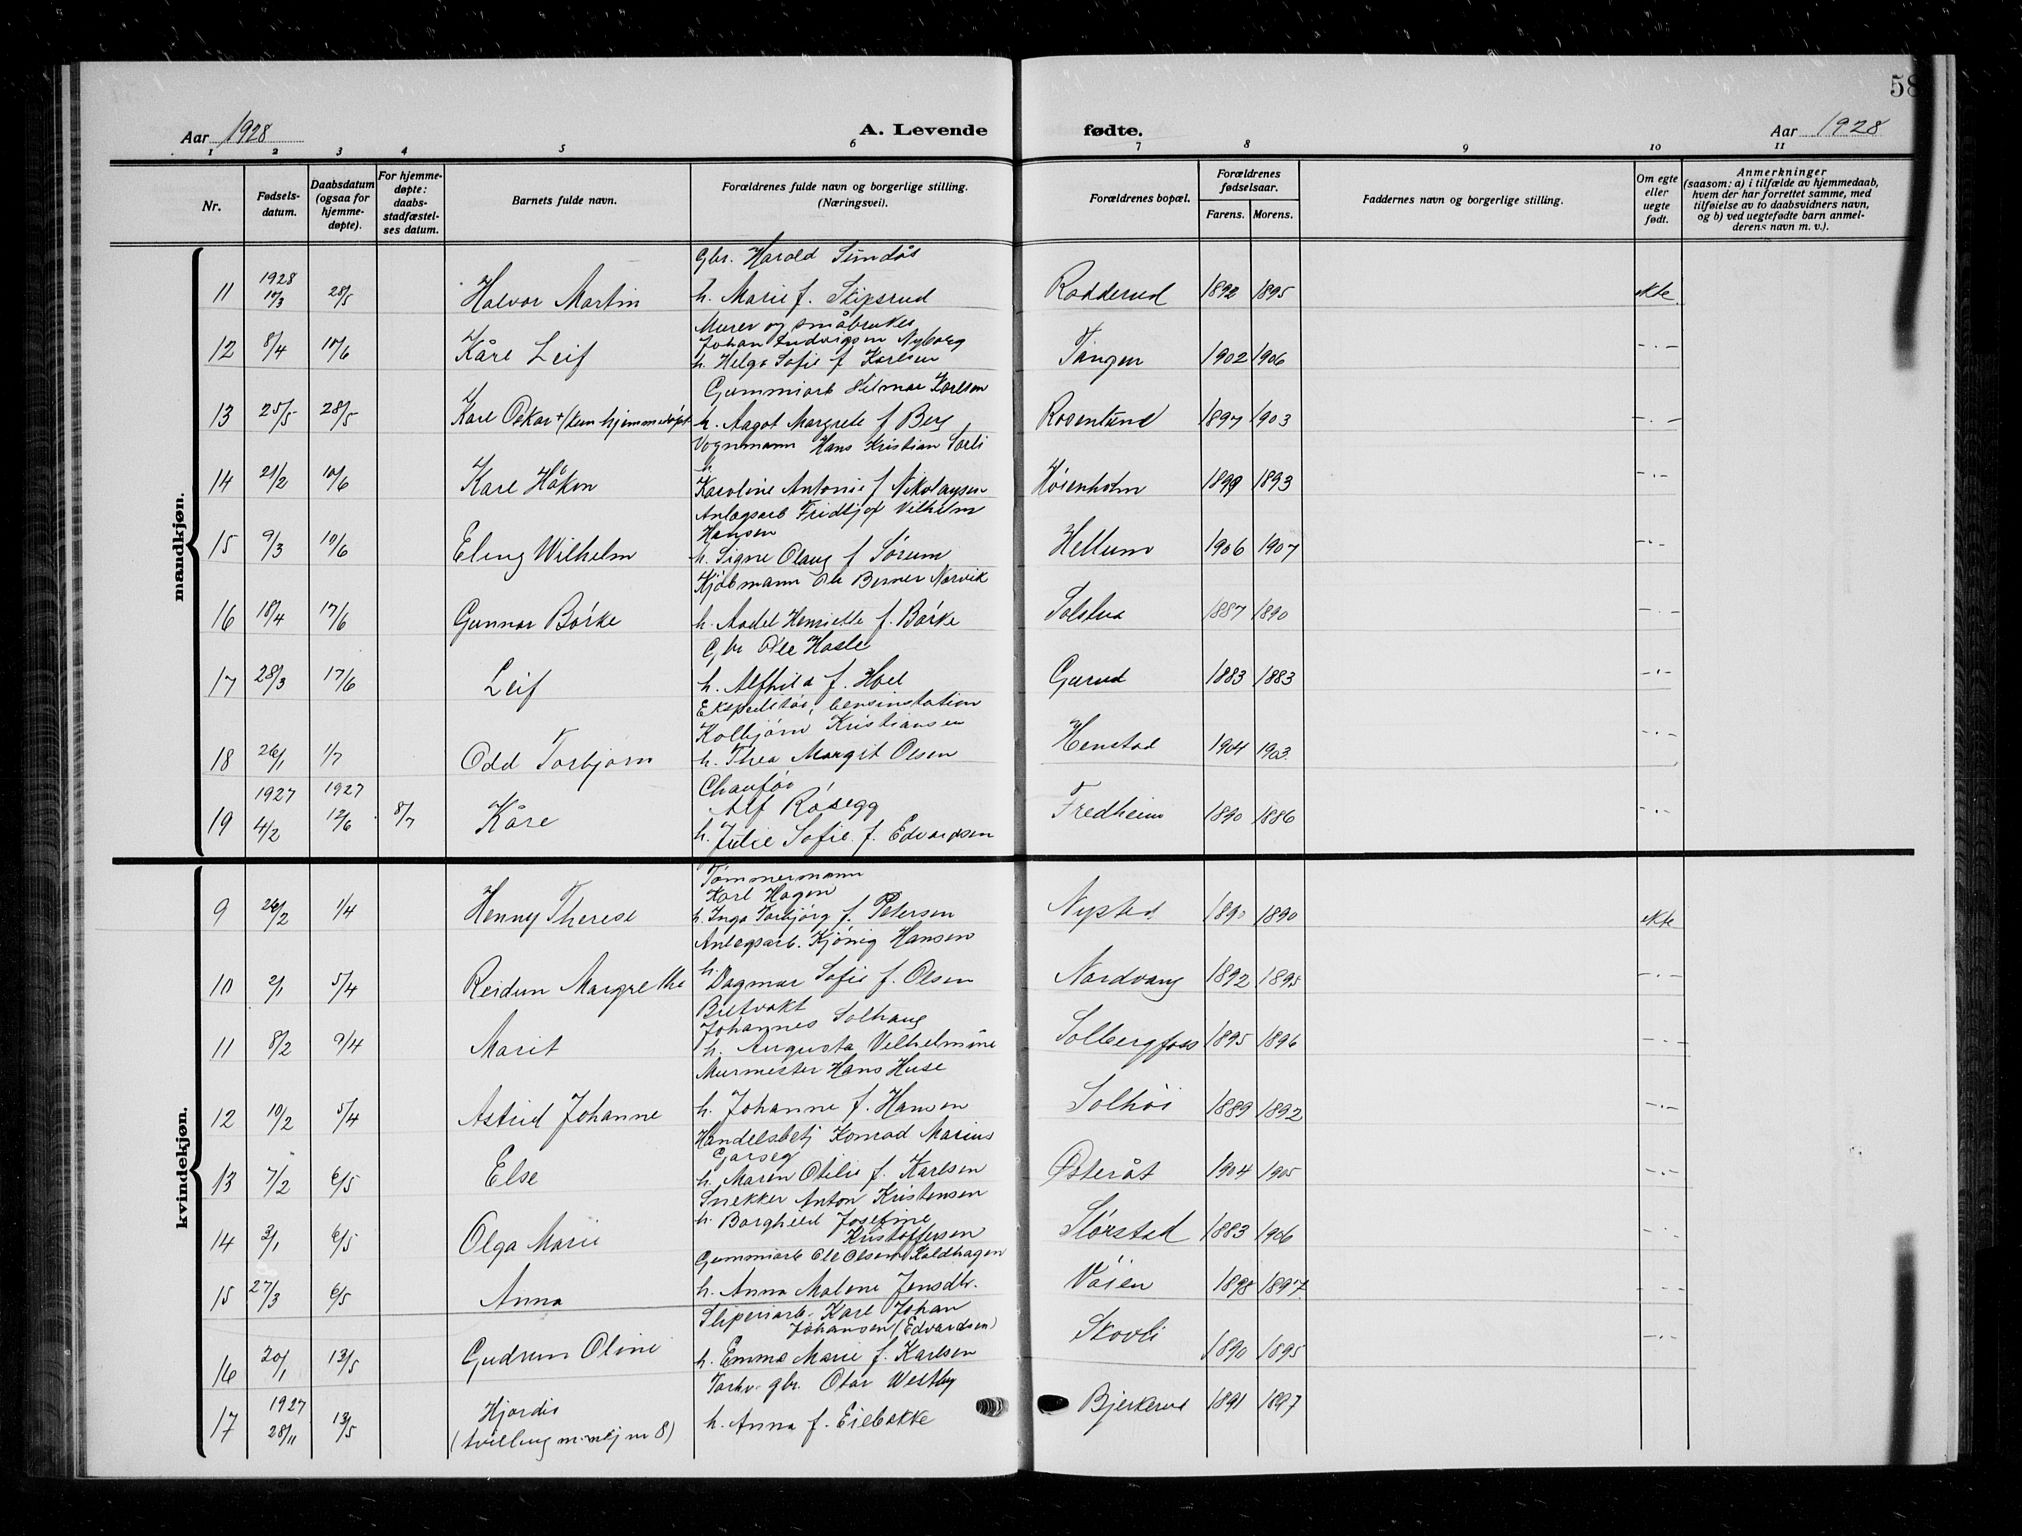 58
Aar 1928
A. Levende
fødte.
Aar 1928
1 2 3 4 5 6 7 8 9 10 11
Nr.
Fødsels-
datum.
Daabsdatum
(ogsaa for
hjemme-
døpte).
For hjemme-
døpte:
daabs-
stadfæstel-
ses datum.
Barnets fulde navn.
Forældrenes fulde navn og borgerlige stilling.
(Næringsvei).
Forældrenes bopæl.
Forældrenes
fødselsaar.
Farens. Morens.
Faddernes navn og borgerlige stilling.
Om egte
eller
uegte
født.
Anmerkninger
(saasom: a) i tilfælde av hjemmedaab,
hvem der har forrettet samme, med
tilføielse av to daabsvidners navn,
og b) ved uegtefødte barn anmel-
derens navn m. v.).
mandkjøn.
Gbr. Harald Simdøs
11 1928 28/5 Halvor Martin h. Marie f. Skipsrud Rodderud 1892 1895 ekte
Murer og småbruker
Johan Ludvigsen Nyborg
12 8/4 10/6 Kåre Leif h. Helga Sofie f Karlsen Tangen 1902 1906 - . -
Gummiarb Helmar Karlsen
13 25/5 28/5 Kåre Oskar + (kun hjemmedøpt h. Aagot Margrete f Berg Rosenlund 1897 1903 - . -
Vognmann Hans Kristian Sørli
h.
14 21/2 10/6 Kåre Håkon Karoline Antonie f Nikolaysen Høienholm 1899 1893 - . -
Anlægsarb Fridtjof Vilhelm
Hansen
15 9/3 10/6 Eling Wilhelm h. Signe Olaug f Sørum Hellum 1906 1907 - . -
Kjøbmann Ole Berner Narvik
16 18/4 17/6 Gunnar Börke h. Aadel Henriette f. Börke Solstua 1887 1890 - . -
Gbr Ole Hasle
17 28/3 17/6 Leif h. Alfhild f. Hoel Garud 1883 1883 - . -
Ekspeditør, bensinstation
Kolbjørn Kristiansen
18 26/1 1/7 Odd Torbjørn h. Thea Margit Olsen Henstad 1904 1903 - . -
1927 1927 Chauför
Alf Rösegg
19 4/2 12/6 8/7 Kåre h. Julie Sofie f. Edvardsen Fredheim 1890 1886 - . -
kvindekjøn.
Tømmermann
Karl Hagen
9 26/2 1/4 Henny Therese h. Inga Torbjørg f. Petersen Nysted 1890 1890 ekte
Anlegsarb. Kjönig Hansen
10 2/1 5/4 Reidun Margrethe h. Dagmar Sofie f. Olsen Nordvang 1892 1895 - . -
Johannes Solhaug
11 8/2 9/4 Marit h. Augusta Vilhelmine Solbergfoss 1895 1896 - . -
Murmester Hans Huse
12 10/2 5/4 Astrid Johanne h. Johanne f. Hansen Solhöi 1889 1892 - . -
Handelsbetj Konrad Marius
Garseg
13 7/2 6/5 Else h. Maren Otilie f Karlsen Østeråt 1904 1905 - . -
Snekker Anton Kristensen
h. Borghild Josefine
Kristoffersen
14 3/1 6/5 Olga Marie Störstad 1883 1906 - . -
Gummiarb Ole Olsen Kaldhagen
15 27/3 6/5 Anna h. Anna Malene Jensdtr. Vøien 1898 1897 - . -
Sliperiarb. Karl Johan
Johansen (Edvardsen)
16 20/1 13/5 Gudrun Oline h. Emma Marie f. Karlsen Skovli 1890 1895 - . -
Forhv. gbr. Olav Westby
17 1927 28/11 13/5 Hjørdis h. Anna f. Eilbakke Bjerkerud 1891 1897
(tvilling m. mkj nr 8)